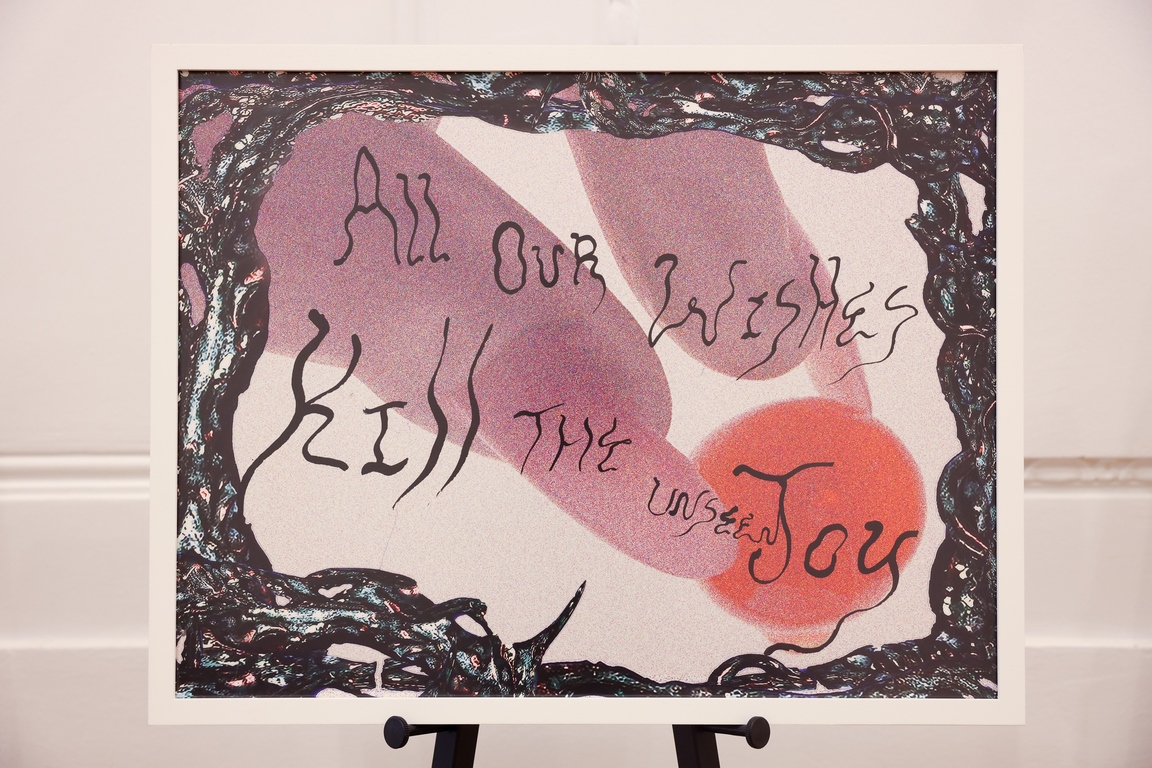 All OUR WISHES
Kill THE UNSEEN Joy